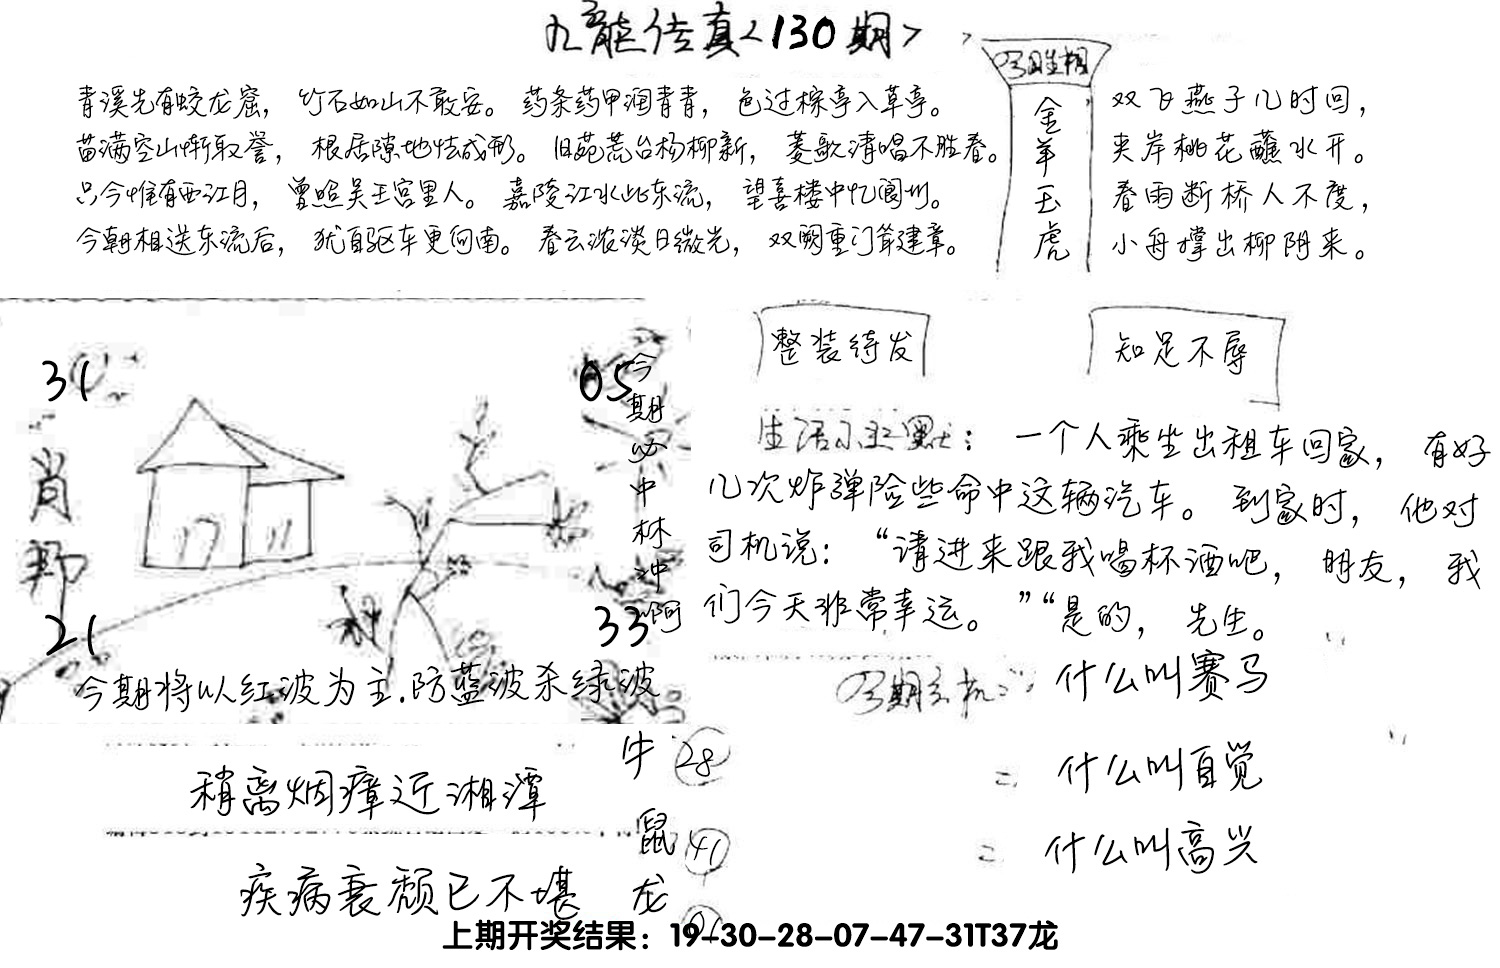 九龍传真<130期>
青溪先有蛟龙窟，竹石如山不敢安。药条药甲润青青，色过棕亭入草亭。
苗满空山惭取誉，根居隙地怯成形。旧苑荒台杨柳新，菱歌清唱不胜春。
只今惟有西江月，曾照吴王宫里人。嘉陵江水此东流，望喜楼中忆阆州。
今朝相送东流后，犹自驱车更向南。春云浓淡日微光，双阙重门耸建章。
金羊玉虎
双飞燕子几时回，
夹岸桃花蘸水开。
春雨断桥人不度，
小舟撑出柳阴来。
31
05
肖
21
33
今期必中林冲啊
今期将以红波为主.防蓝波杀绿波
整装待发
知足不辱
生活幽默：一个人乘坐出租车回家，有好
几次炸弹险些命中这辆汽车。到家时，他对
司机说：“请进来跟我喝杯酒吧，朋友，我
们今天非常幸运。”“是的，先生。
什么叫赛马
= 什么叫自觉
= 什么叫高兴
稍离烟瘴近湘潭
疾病衰颓已不堪
牛 28
鼠 41
龙
上期开奖结果：19-30-28-07-47-31T37龙